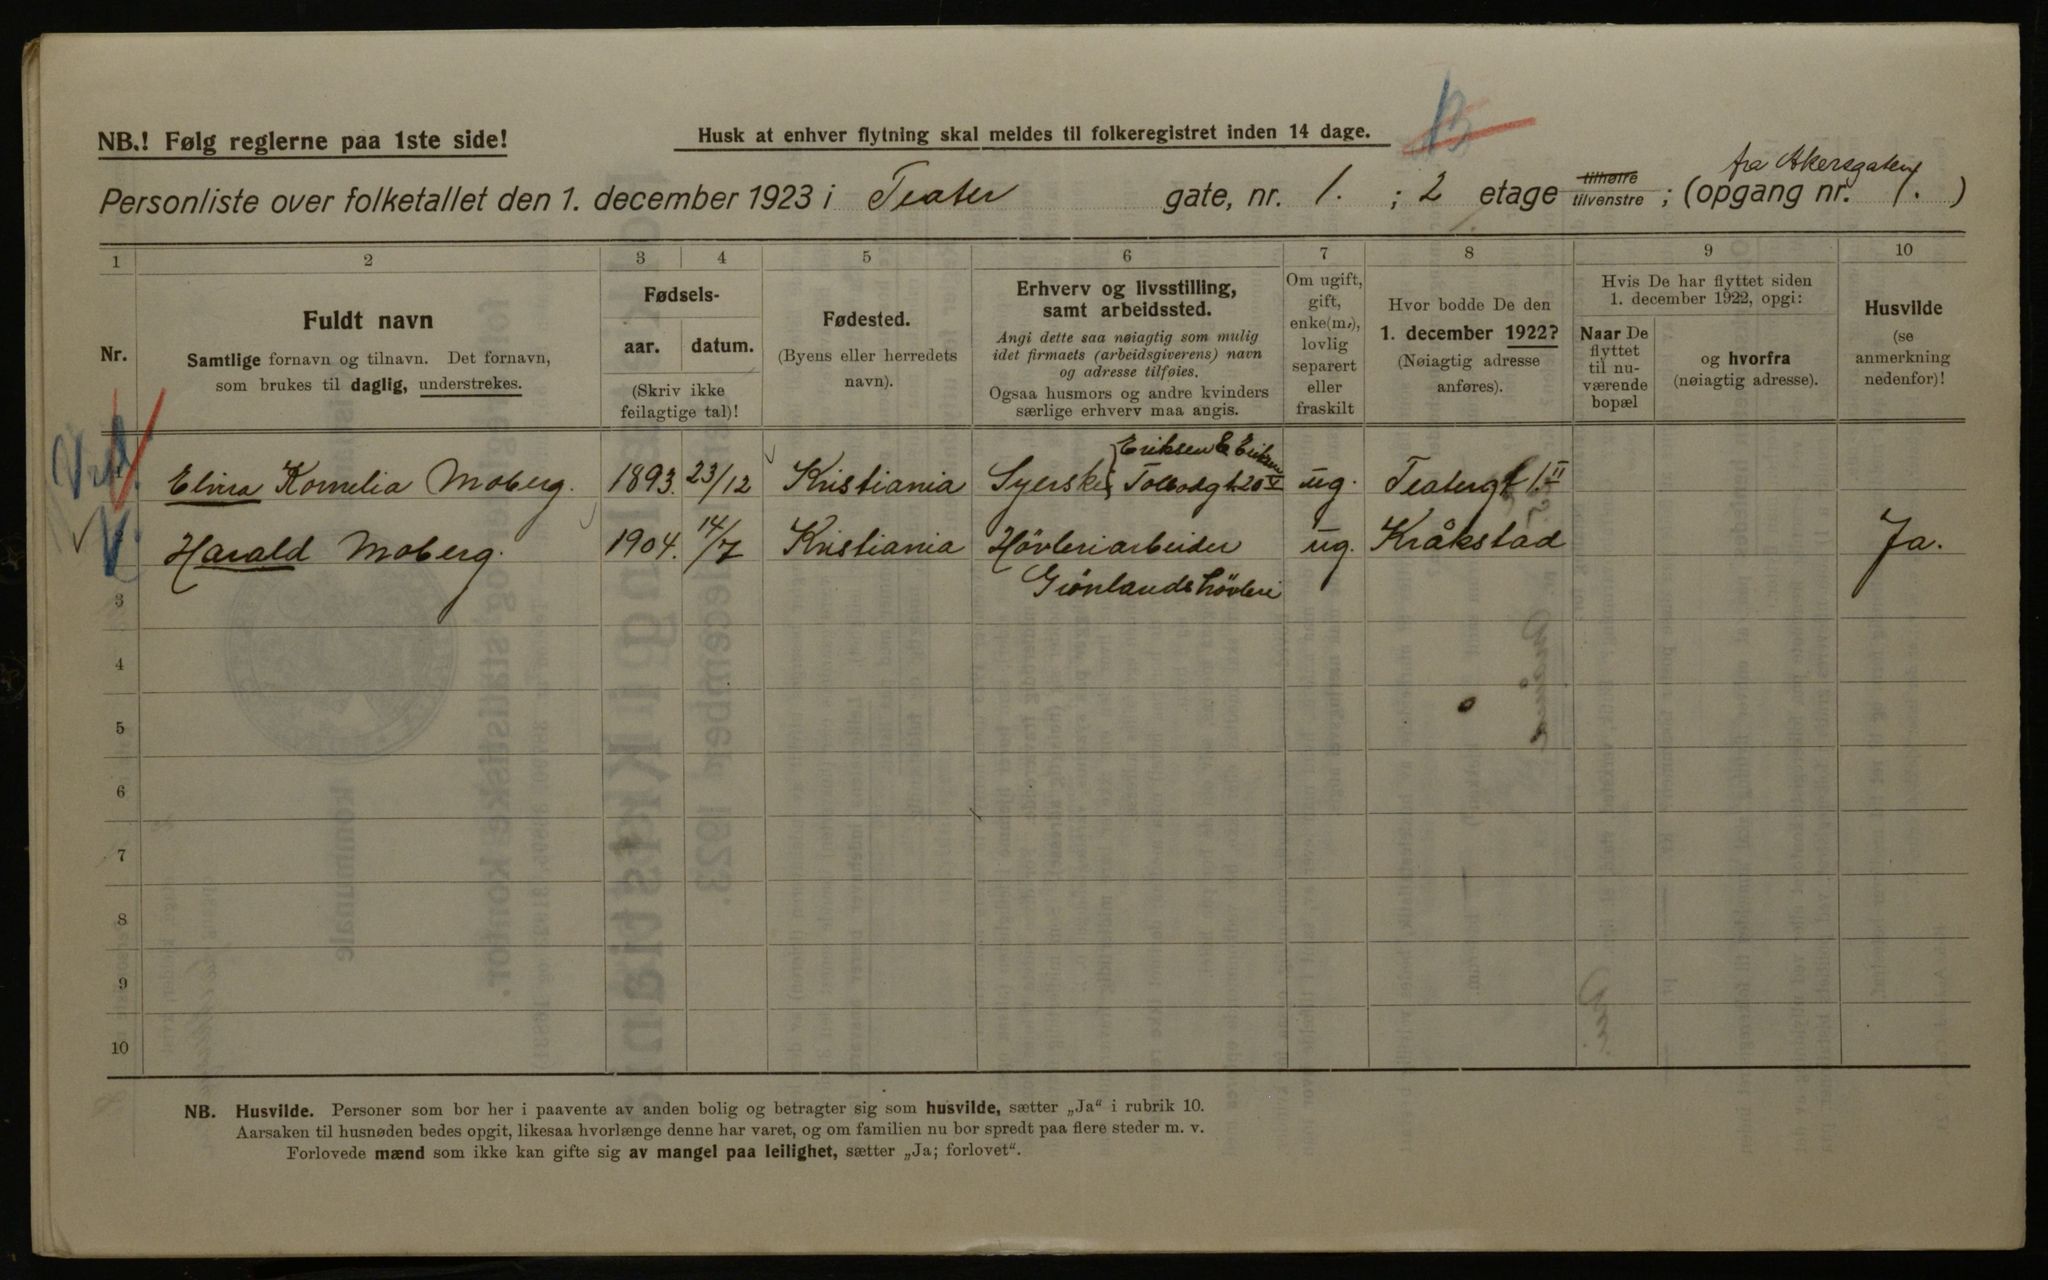 NB.! Følg reglerne paa 1ste side!
Husk at enhver flytning skal meldes til folkeregistret inden 14 dage.
fra Akersgaten
Personliste over folketallet den 1. december 1923 i Teater gate, nr. 1. ; 2 etage tilhøire tilvenstre ; (opgang nr. 1. )
1 2 3 4 5 6 7 8 9 10
Nr.
Fuldt navn
Samtlige fornavn og tilnavn. Det fornavn,
som brukes til daglig, understrekes.
Fødsels-
aar. datum.
(Skriv ikke
feilagtige tal)!
Fødested.
(Byens eller herredets
navn).
Erhverv og livsstilling,
samt arbeidssted.
Angi dette saa nøiagtig som mulig
idet firmaets (arbeidsgiverens) navn
og adresse tilføies.
Ogsaa husmors og andre kvinders
særlige erhverv maa angis.
Om ugift,
gift,
enke(m.),
lovlig
separert
eller
fraskilt
Hvor bodde De den
1. december 1922?
(Nøiagtig adresse
anføres).
Hvis De har flyttet siden
1. december 1922, opgi:
Naar De
flyttet
til nu-
værende
bopæl
og hvorfra
(nøiagtig adresse).
Husvilde
(se
anmerkning
nedenfor)!
Eriksen & Eriksen
Elvira Kornelia Moberg. 1893. 23/12 Kristiania Syerske Tolbodgt. 20 V ug. Teatergt 1. II
Harald Moberg. 1904. 14/7 Kristiania Høvleriarbeider ug. Kråkstad Ja.
Grönlands hövleri
3
4
5
6
7
8
9
10
NB. Husvilde. Personer som bor her i paavente av anden bolig og betragter sig som husvilde, sætter „Ja“ i rubrik 10.
Aarsaken til husnøden bedes opgit, likesaa hvorlænge denne har varet, og om familien nu bor spredt paa flere steder m. v.
Forlovede mænd som ikke kan gifte sig av mangel paa leilighet, sætter „Ja; forlovet“.